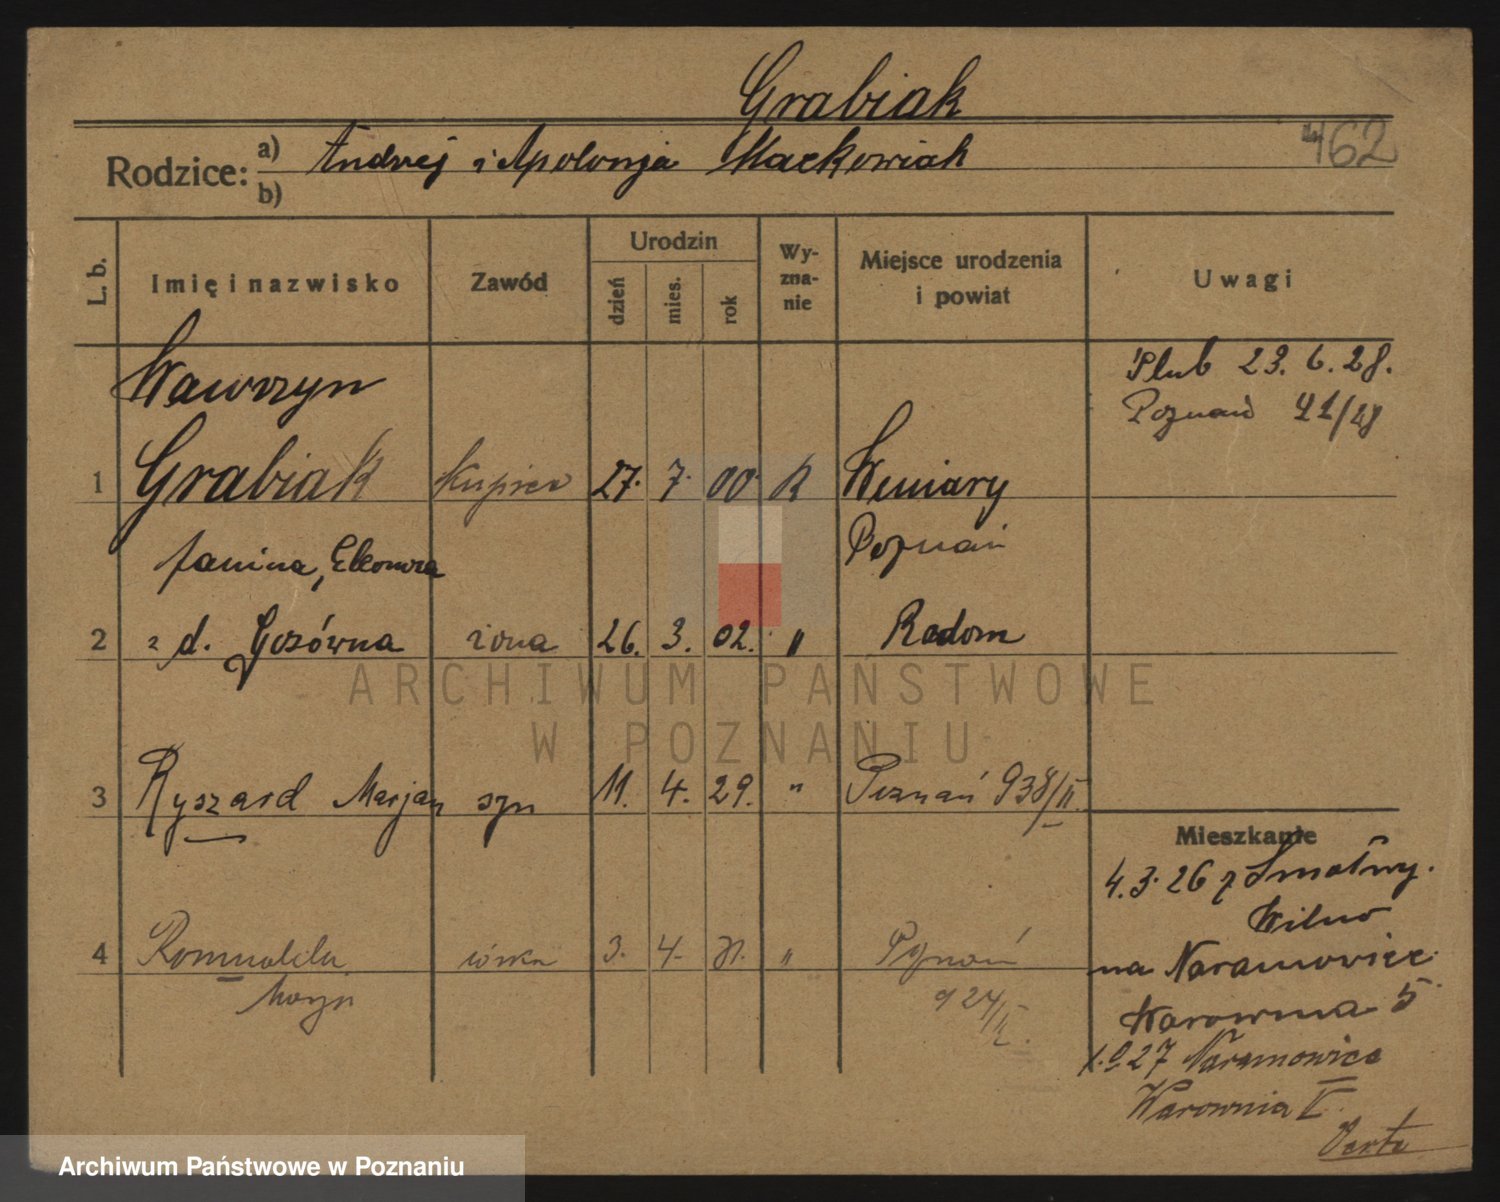 Grabiak
462
Rodzice: a) Andrzej i Apolonja Maćkowiak
b)
L. b.
Imię i nazwisko
Zawód
Urodzin
dzień
mies.
rok
Wy-
zna-
nie
Miejsce urodzenia
i powiat
Uwagi
Wawrzyn
Ślub 23. 6. 28.
Poznań
1 Grabiak Kupiec 27. 7. 00. R Winiary
Poznań
Janina, Eleonora
2 z d. żona 26. 3. 02. " Radom
3 Ryszard Marjan syn 11. 4. 29. " Poznań 938/II
Mieszkanie
4. 3. 26 z
Wilno
4 Romualda córka 3. 4. 31. " Poznań
na Naramowice
Marja 924/II.
Warownia 5
27 Naramowice
Warownia V
Verte
ARCHIWUM PAŃSTWOWE
W POZNANIU
Archiwum Państwowe w Poznaniu